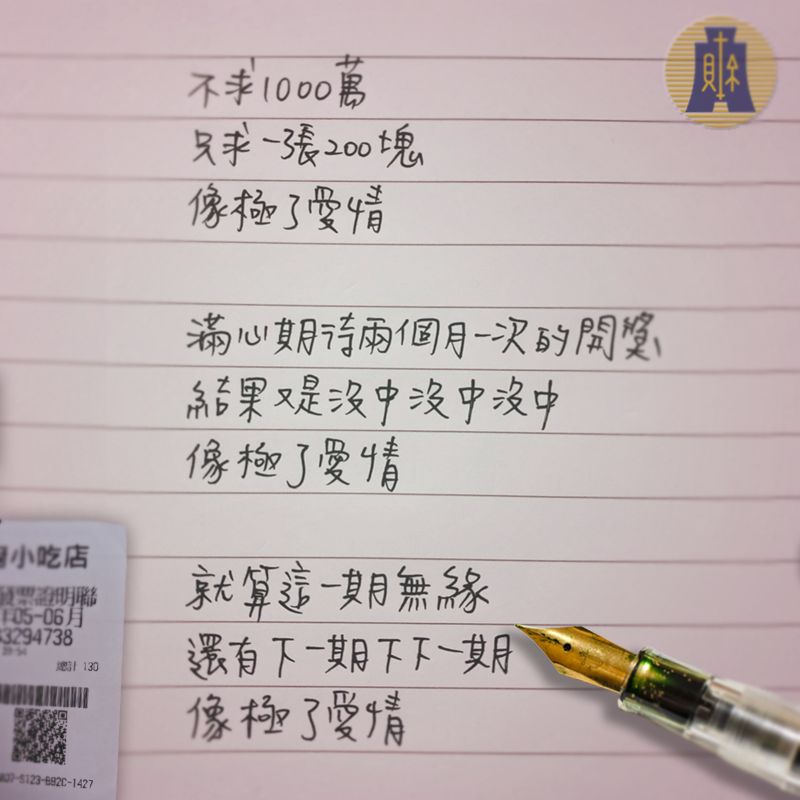 財
不求1000萬
只求一張200塊
像極了愛情
滿心期待兩個月一次的開獎
結果又是沒中沒中沒中
像極了愛情
就算這一期無緣
還有下一期下下一期
像極了愛情
小吃店
發票證明聯
年05-06月
63294738
總計 130
S123-B92C-1427